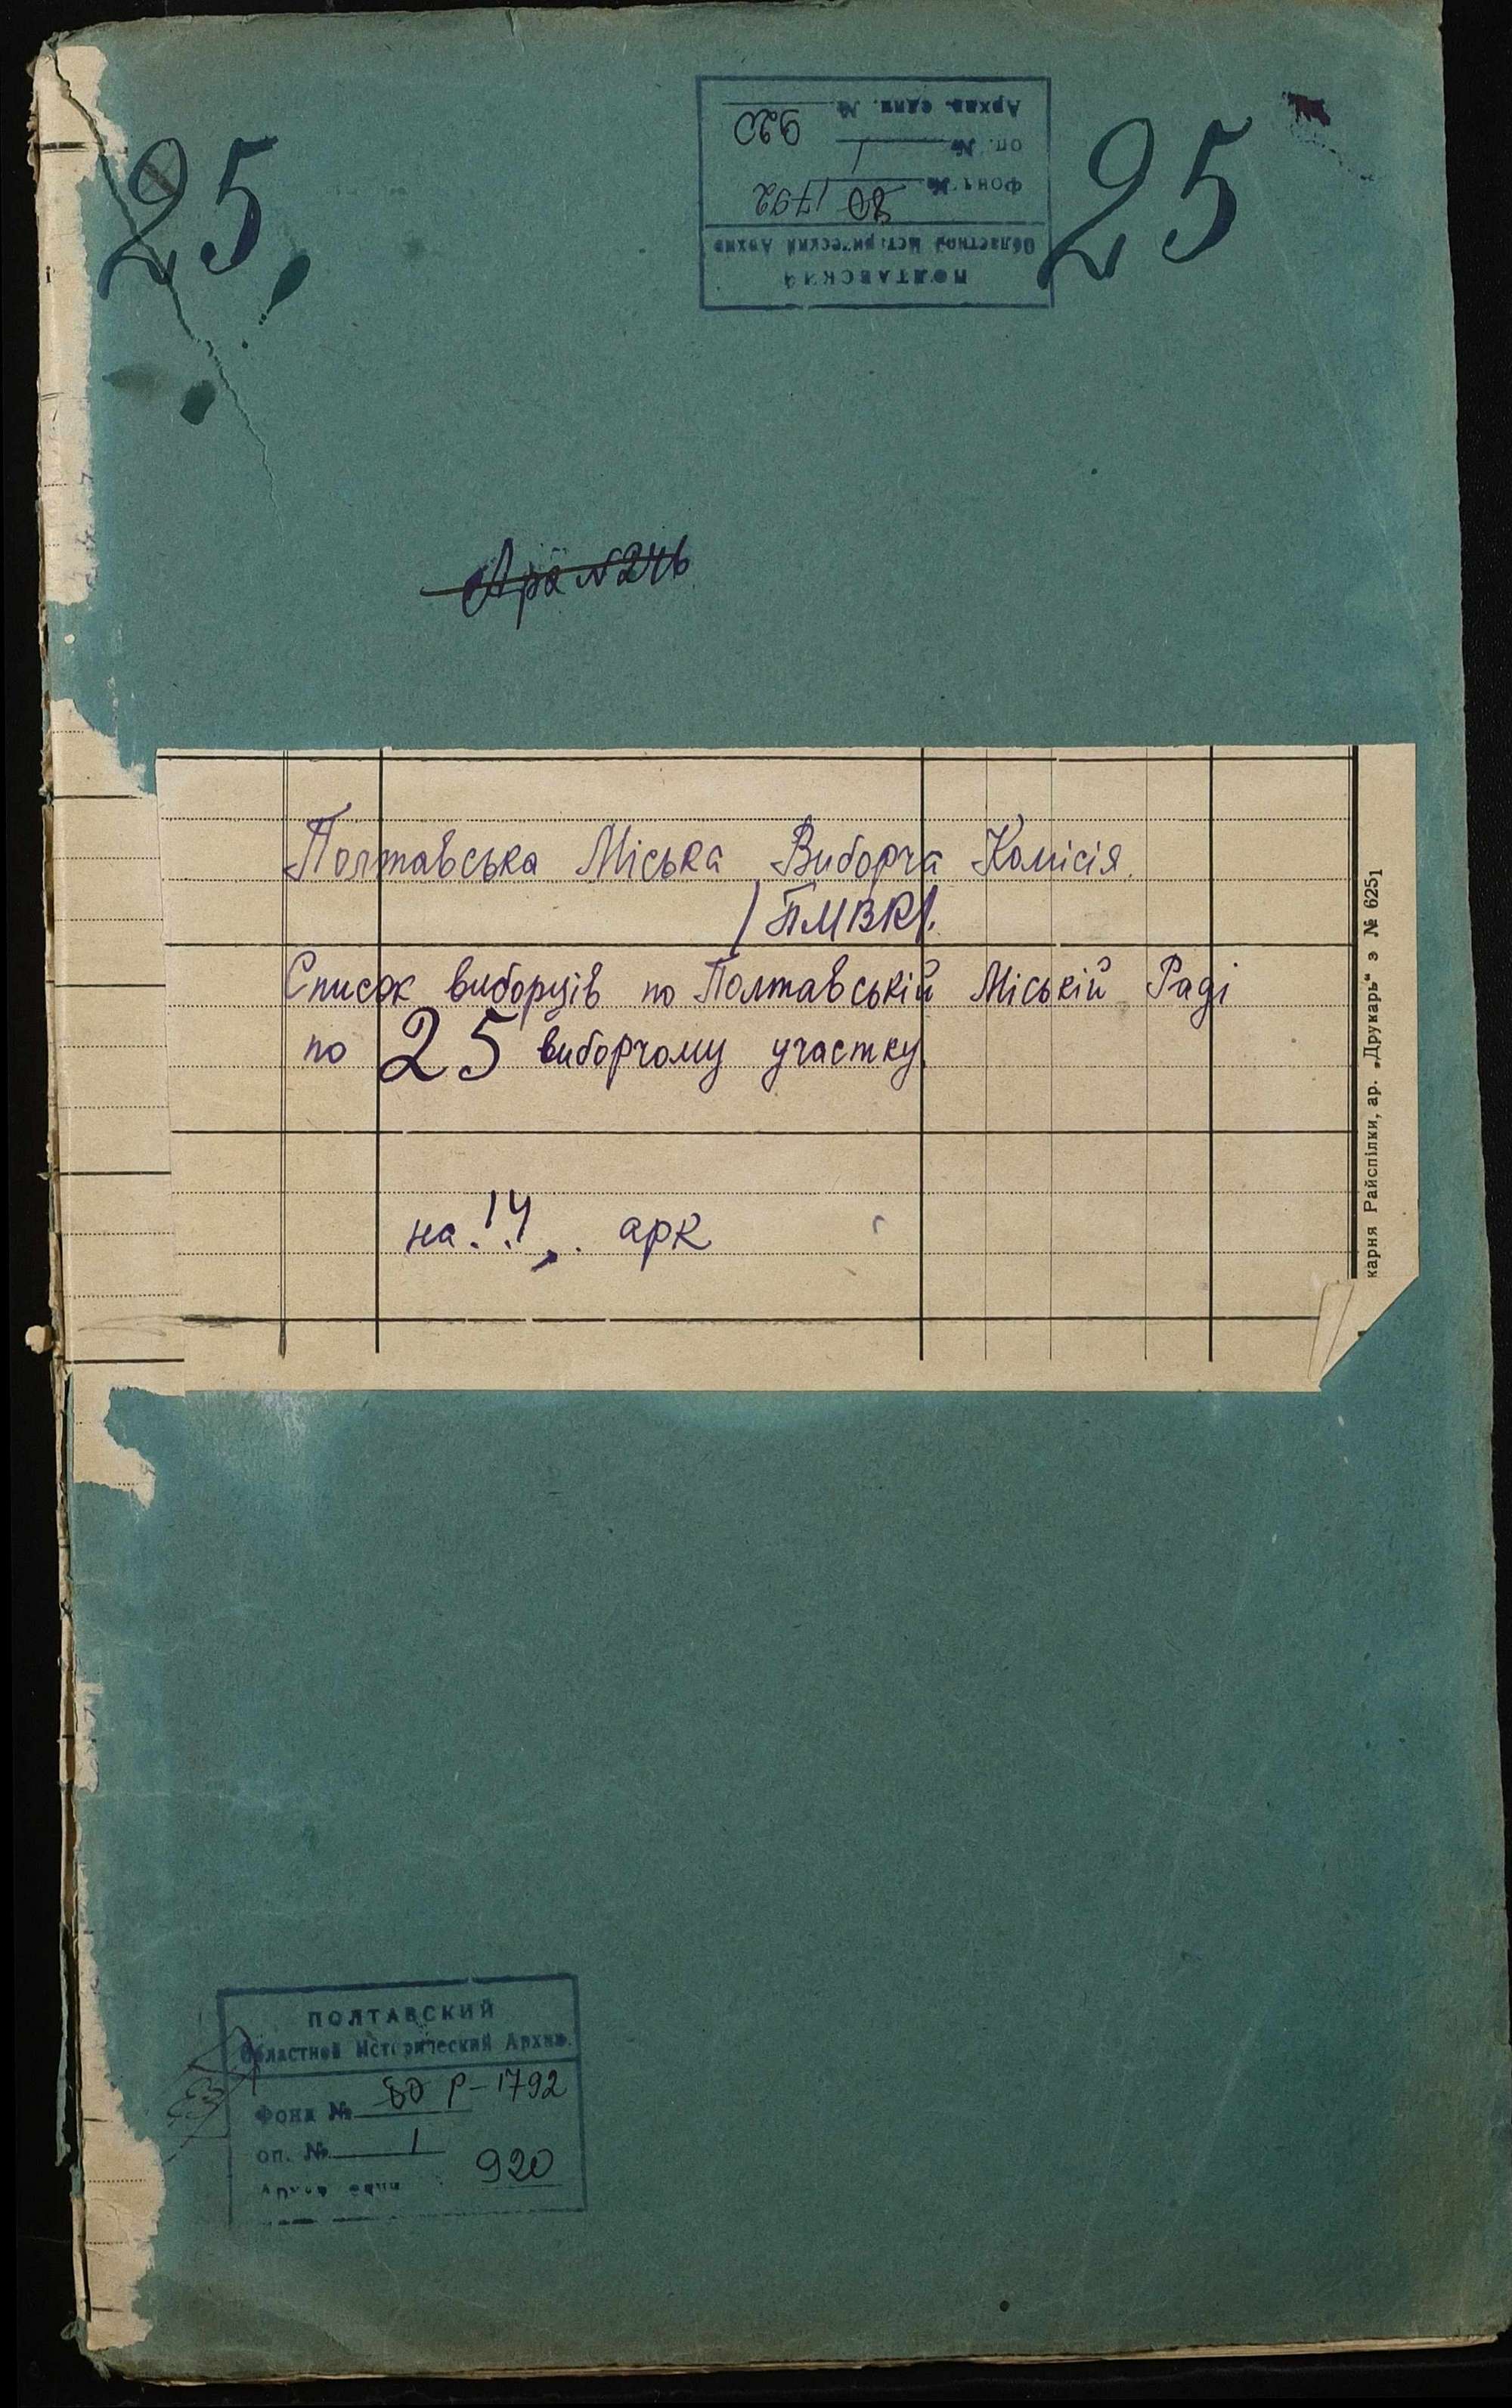 25
25
ПОЛТАВСКИЙ
Областной Исторический Архив
Фонд № 80 1792
оп. № 1
Архив. един. № 920
№ 246
Полтавська Міська Виборча Комісія.
/ПМВК/.
Список виборців по Полтавській Міській Раді
по 25 виборчому участку.
на 14 арк
карня Райспілки, ар. „Друкарь“ з № 6251
ПОЛТАВСКИЙ
Областной Исторический Архив.
Фонд № 80 Р-1792
оп. № 1
Архив. един. 920